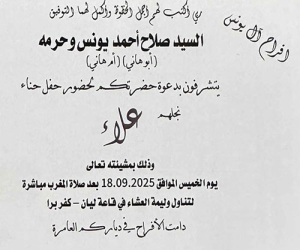 افراح آل يونس
ربي اكتب لهم اجمل الخطوة واكمل لهما التوفيق
السيد صلاح أحمد يونس وحرمه
(أبو هاني) (أم هاني)
يتشرفون بدعوة حضرتكم لحضور حفل حناء
نجلهم
علاء
وذلك بمشيئته تعالى
يوم الخميس الموافق 18.09.2025 بعد صلاة المغرب مباشرة
لتناول وليمة العشاء في قاعة ليان - كفر برا
دامت الأفراح في دياركم العامرة